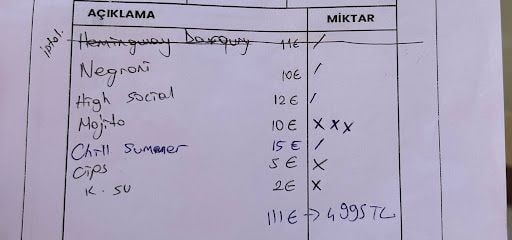 AÇIKLAMA MİKTAR
iptal. Hemingway Daıquırı 11€ /
Negroni 10€ /
High Social 12€ /
Mojito 10€ x x x
Chill Summer 15€ /
Cips 5€ x
K. SU 2€ x
111€ → 4995TL